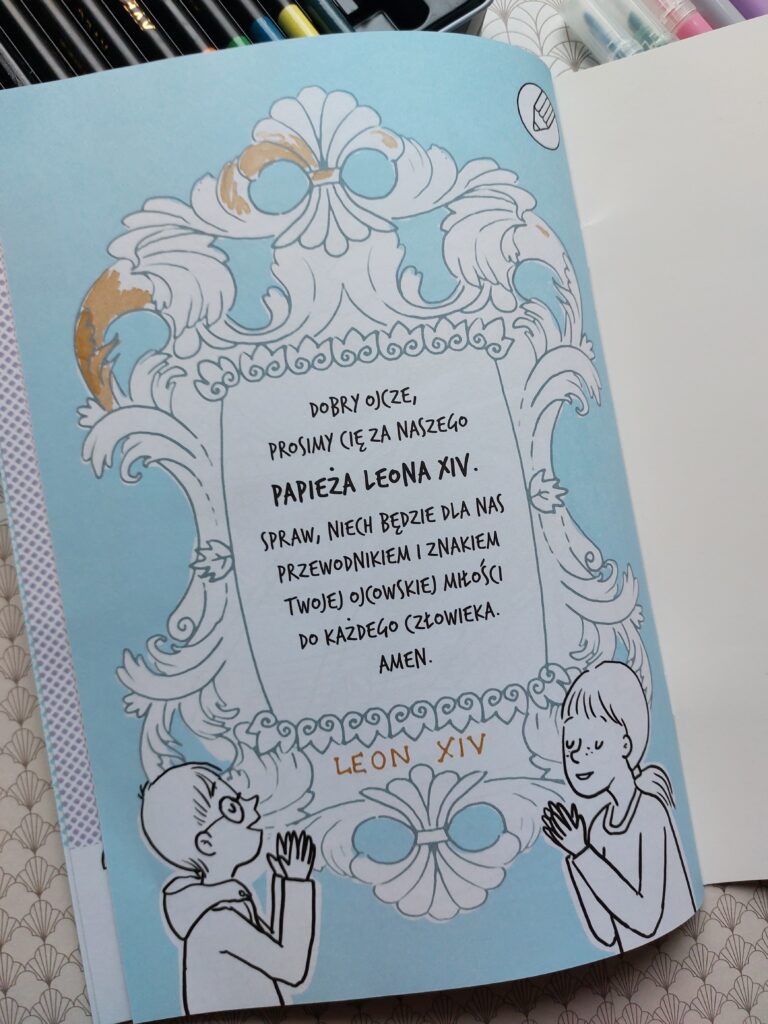 DOBRY OJCZE,
PROSIMY CIĘ ZA NASZEGO
PAPIEŻA LEONA XIV.
SPRAW, NIECH BĘDZIE DLA NAS
PRZEWODNIKIEM I ZNAKIEM
TWOJEJ OJCOWSKIEJ MIŁOŚCI
DO KAŻDEGO CZŁOWIEKA.
AMEN.
LEON XIV